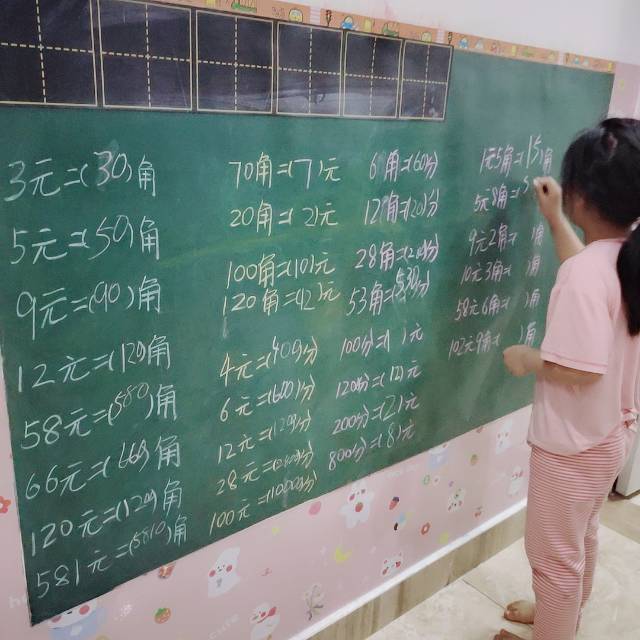 3元=(30)角
5元=(50)角
9元=(90)角
12元=(120)角
58元=(580)角
66元=(660)角
120元=(1200)角
581元=(5810)角
70角=(7)元
20角=(2)元
100角=(10)元
120角=(12)元
4元=(400分)
6元=(600分)
12元=(1200分)
28元=(2800分)
100元=(10000分)
6角=(60分)
12角=(120)分
28角=(280)分
53角=(530)分
100分=(1)元
1200分=(12)元
200分=(2)元
800分=(8)元
1元5角=(15)角
5元8角=(5
9元2角=( )角
10元3角=( )角
58元6角=( )角
102元9角=( )角